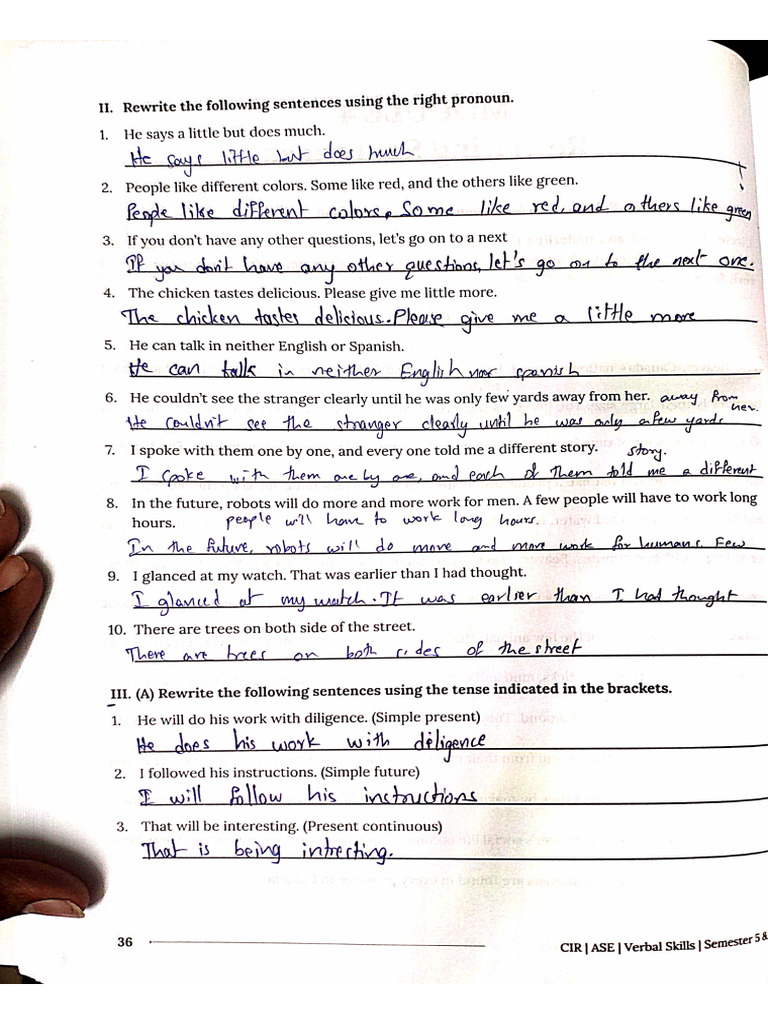 II. Rewrite the following sentences using the right pronoun.
1. He says a little but does much.
He says little but does much
2. People like different colors. Some like red, and the others like green.
People like different colors. Some like red, and others like green
3. If you don't have any other questions, let's go on to a next
If you don't have any other questions, let's go on to the next one.
4. The chicken tastes delicious. Please give me little more.
The chicken tastes delicious. Please give me a little more
5. He can talk in neither English or Spanish.
He can talk in neither English nor spanish
6. He couldn't see the stranger clearly until he was only few yards away from her. away from
her.
He couldn't see the stranger clearly until he was only a few yards
7. I spoke with them one by one, and every one told me a different story. story.
I spoke with them one by one, and each of them told me a different
8. In the future, robots will do more and more work for men. A few people will have to work long
hours. people will have to work long hours.
In the future, robots will do more and more work for humans. Few
9. I glanced at my watch. That was earlier than I had thought.
I glanced at my watch. It was earlier than I had thought
10. There are trees on both side of the street.
There are trees on both sides of the street
III. (A) Rewrite the following sentences using the tense indicated in the brackets.
1. He will do his work with diligence. (Simple present)
He does his work with diligence
2. I followed his instructions. (Simple future)
I will follow his instructions
3. That will be interesting. (Present continuous)
That is being intresting.
36
CIR | ASE | Verbal Skills | Semester 5 &